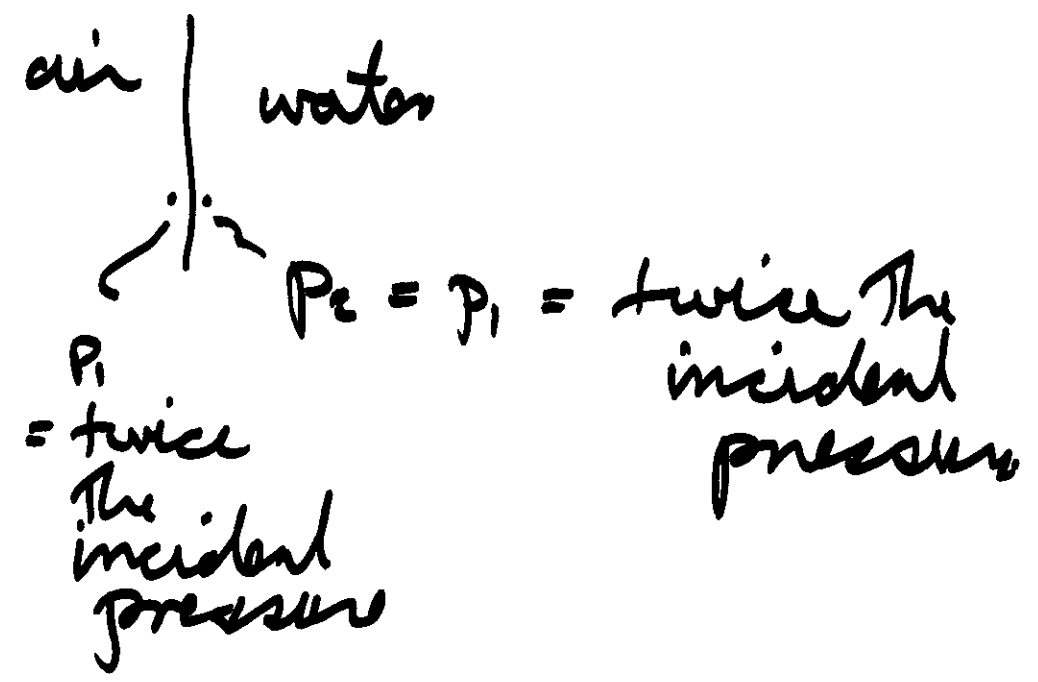 air
water
P₂ = P₁ = twice the
incident
pressure
P₁
= twice
the
incident
pressure